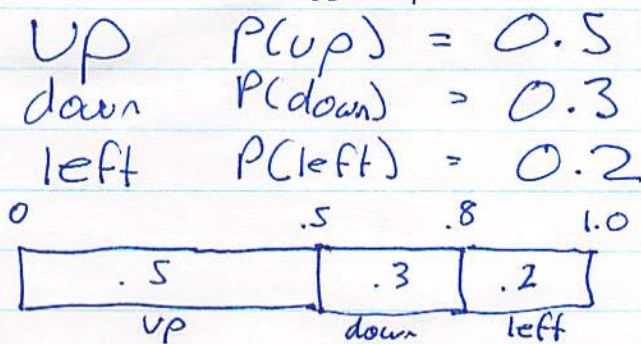 up P(up) = 0.5
down P(down) = 0.3
left P(left) = 0.2
0 .5 .8 1.0
.5 .3 .2
up down left